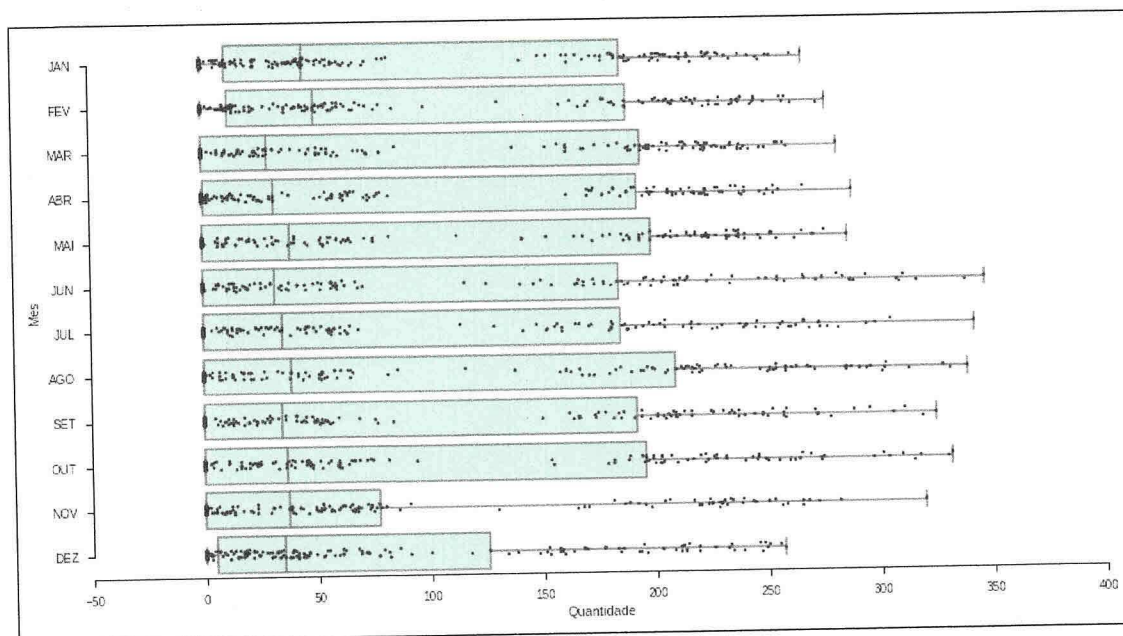 JAN
FEV
MAR
ABR
MAI
JUN
JUL
AGO
SET
OUT
NOV
DEZ
Mes
-50
0
50
100
150
200
250
300
350
400
Quantidade